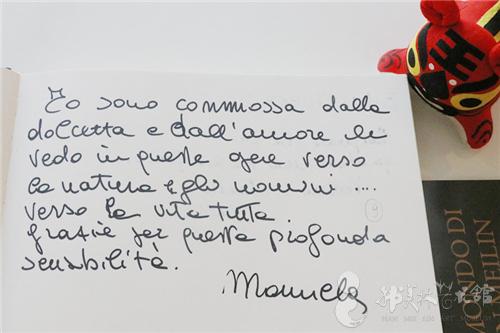 Io sono commossa dalla
dolcetta e dall'amore che
vedo in queste opere verso
la natura e gli uomini ....
verso la vita tutta.
grazie per questa profonda
sensibilità.
Manuela
MONDO DI